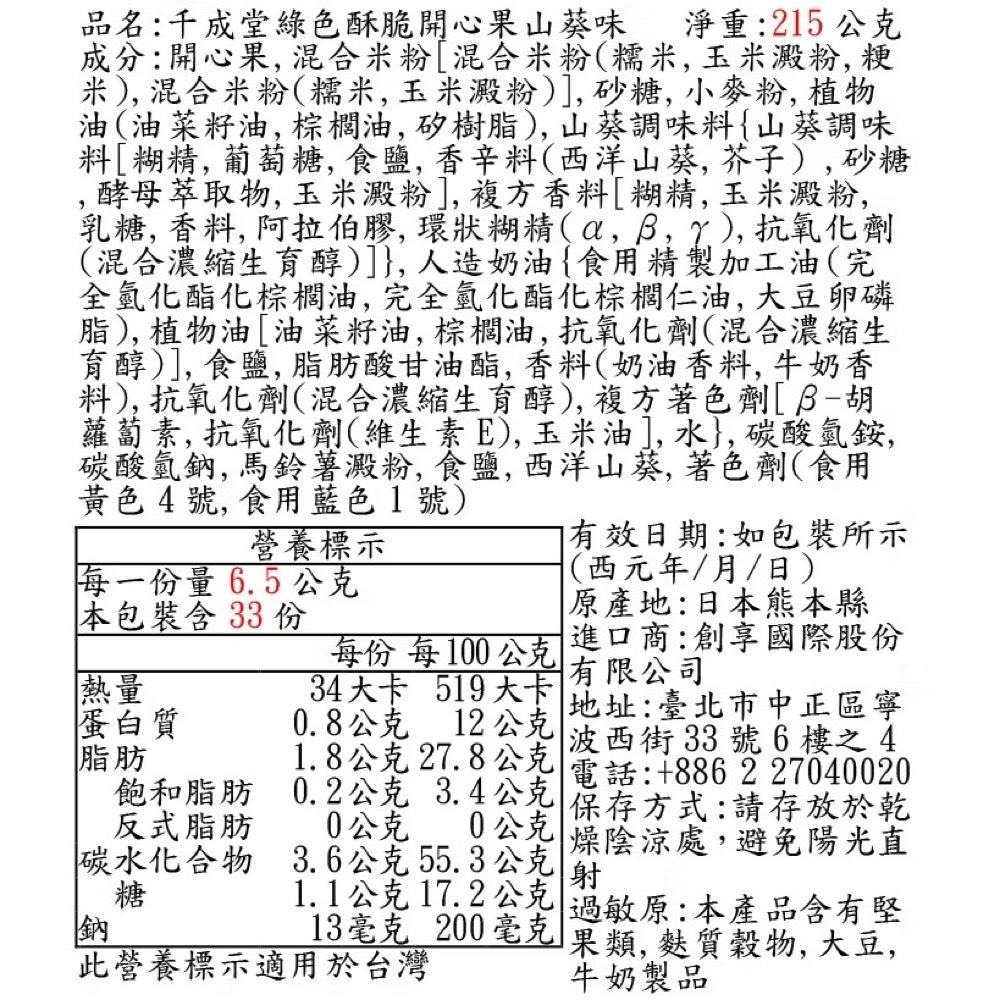 品名:千成堂綠色酥脆開心果山葵味 淨重:215 公克
成分:開心果,混合米粉[混合米粉(糯米,玉米澱粉,粳
米),混合米粉(糯米,玉米澱粉)],砂糖,小麥粉,植物
油(油菜籽油,棕櫚油,矽樹脂),山葵調味料{山葵調味
料[糊精,葡萄糖,食鹽,香辛料(西洋山葵,芥子),砂糖
,酵母萃取物,玉米澱粉],複方香料[糊精,玉米澱粉,
乳糖,香料,阿拉伯膠,環狀糊精(α, β, γ),抗氧化劑
(混合濃縮生育醇)]},人造奶油{食用精製加工油(完
全氫化酯化棕櫚油,完全氫化酯化棕櫚仁油,大豆卵磷
脂),植物油[油菜籽油,棕櫚油,抗氧化劑(混合濃縮生
育醇)],食鹽,脂肪酸甘油酯,香料(奶油香料,牛奶香
料),抗氧化劑(混合濃縮生育醇),複方著色劑[β-胡
蘿蔔素,抗氧化劑(維生素E),玉米油],水},碳酸氫銨,
碳酸氫鈉,馬鈴薯澱粉,食鹽,西洋山葵,著色劑(食用
黃色 4 號,食用藍色 1 號)
營養標示
每一份量 6.5 公克
本包裝含 33 份
每份 每100公克
熱量 34大卡 519大卡
蛋白質 0.8公克 12公克
脂肪 1.8公克 27.8公克
飽和脂肪 0.2公克 3.4公克
反式脂肪 0公克 0公克
碳水化合物 3.6公克 55.3公克
糖 1.1公克 17.2公克
鈉 13毫克 200毫克
此營養標示適用於台灣
有效日期:如包裝所示
(西元年/月/日)
原產地:日本熊本縣
進口商:創享國際股份
有限公司
地址:臺北市中正區寧
波西街 33 號 6 樓之 4
電話:+886 2 27040020
保存方式:請存放於乾
燥陰涼處,避免陽光直
射
過敏原:本產品含有堅
果類,麩質穀物,大豆,
牛奶製品